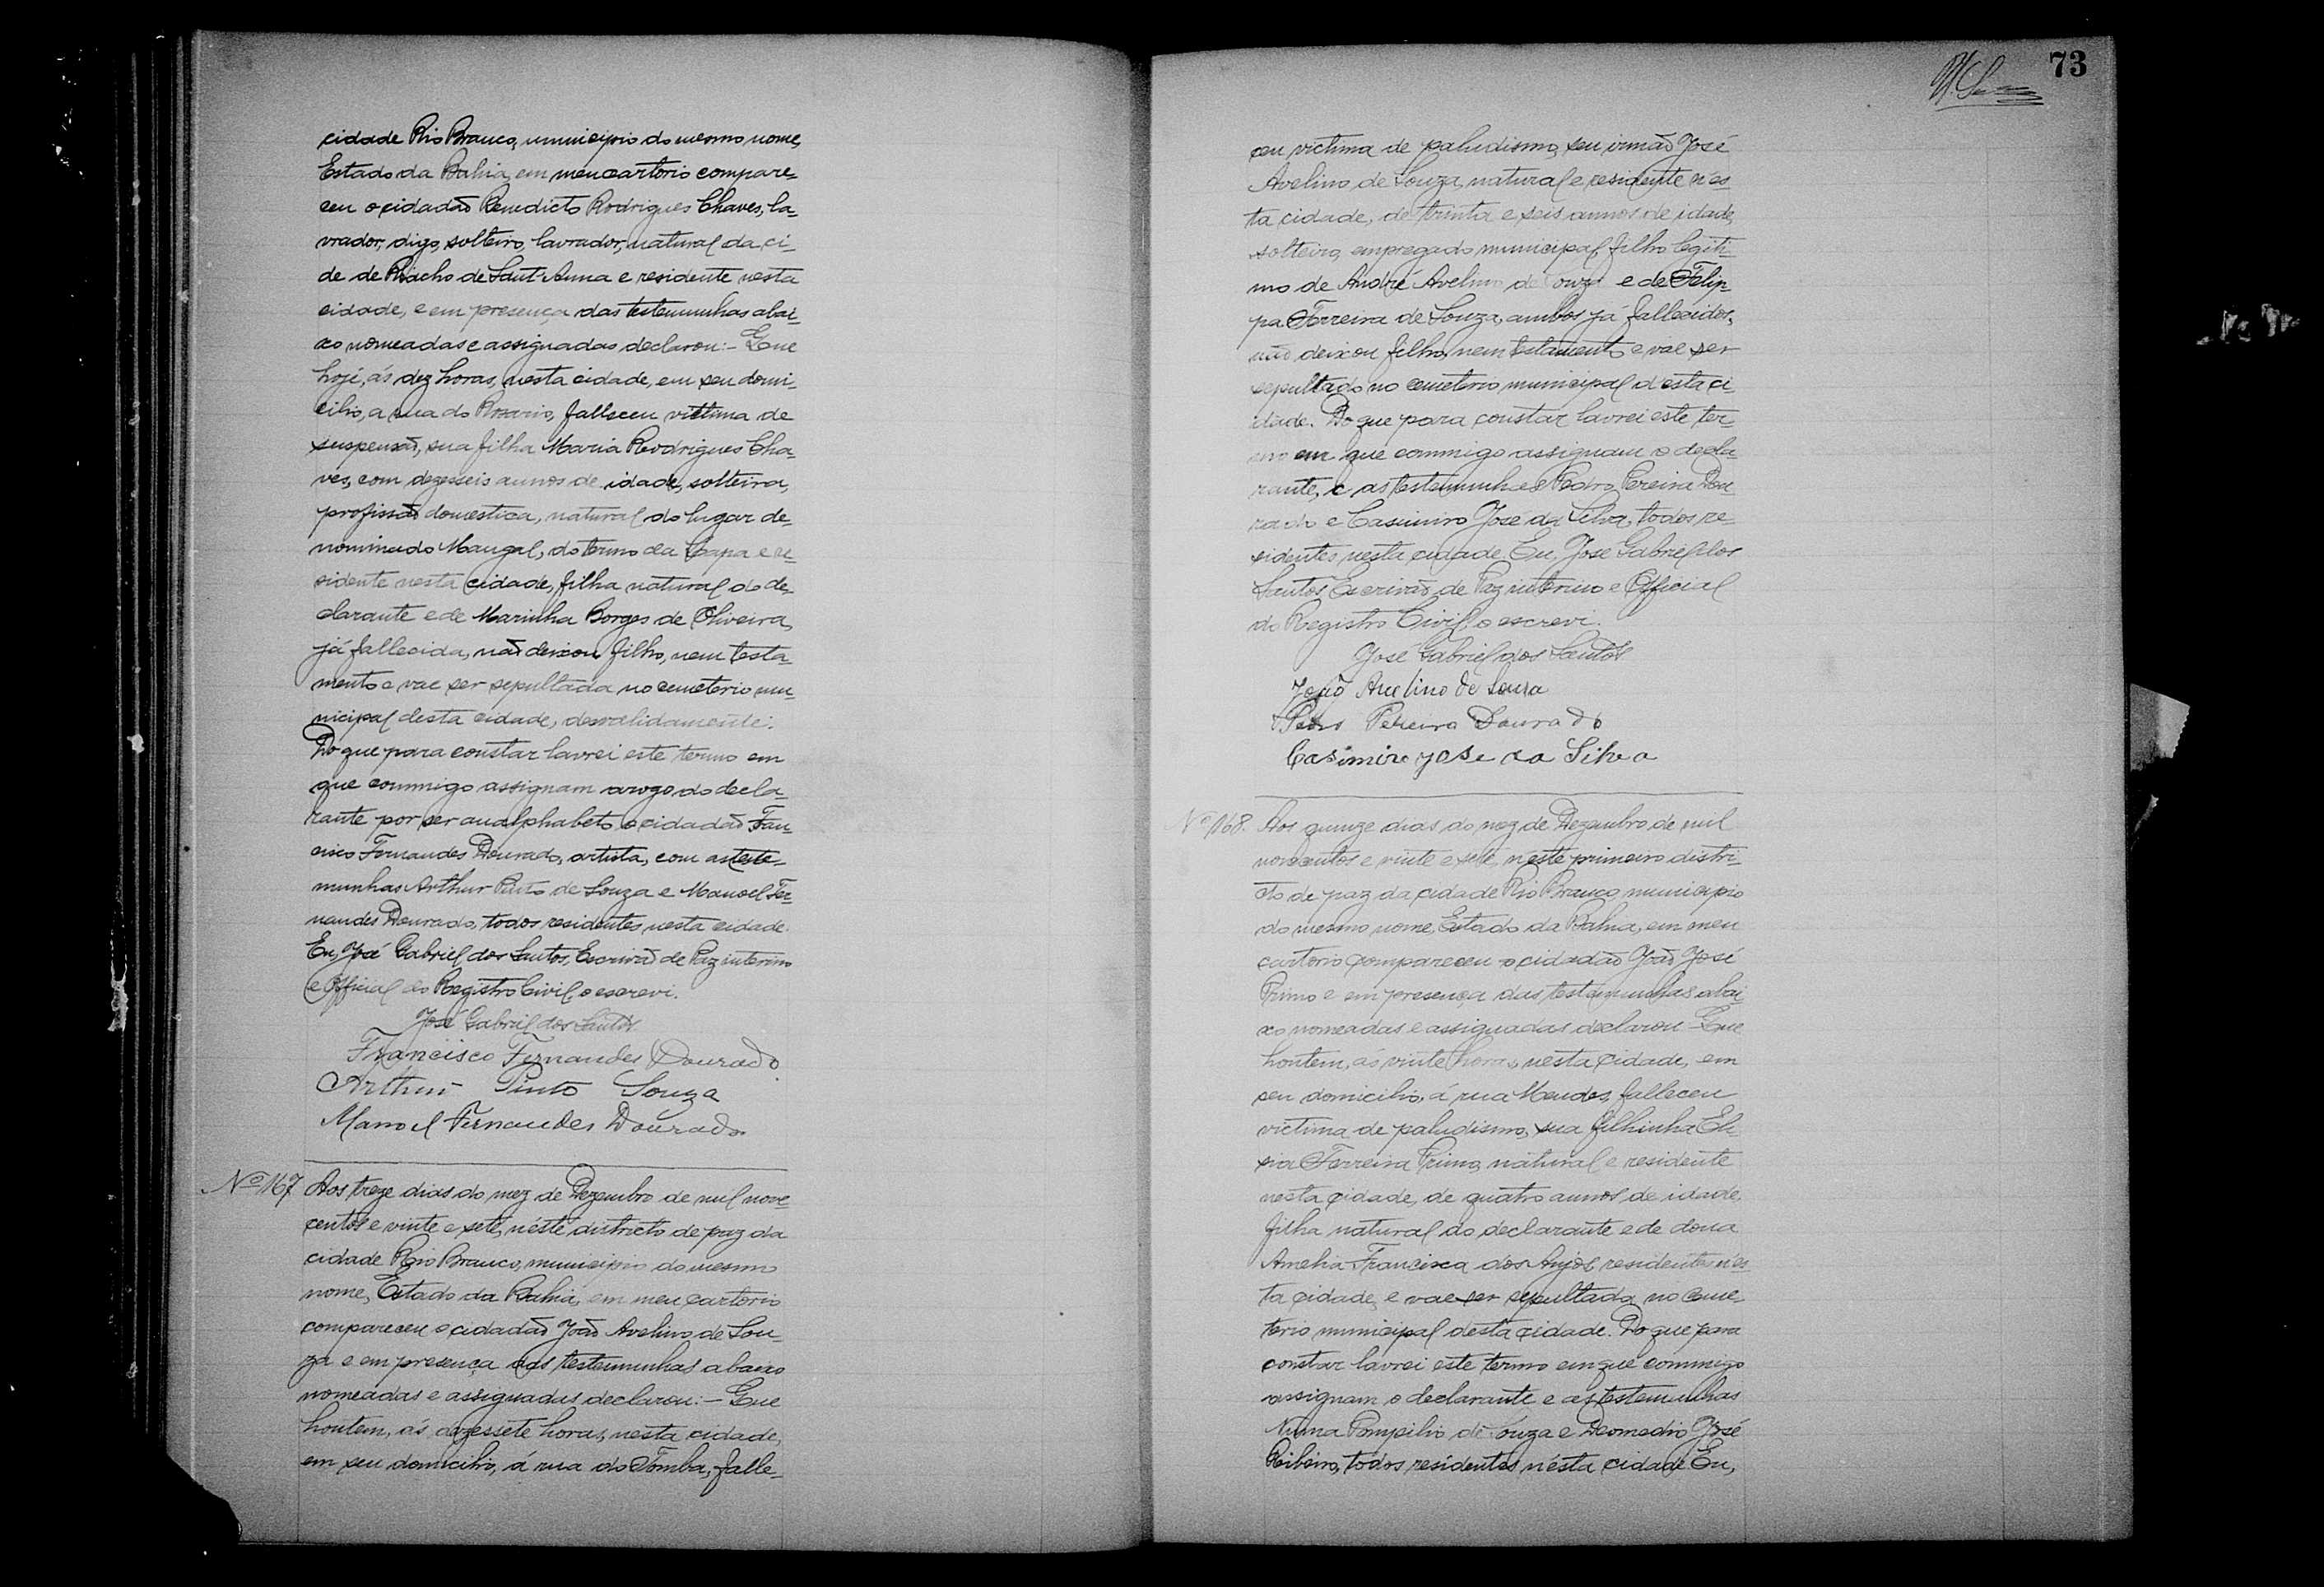 cidade Rio Branco, municipio do mesmo nome,
Estado da Bahia, em meu cartorio compare-
ceu o cidadão Benedicto Rodrigues Chaves, la-
vrador, digo, solteiro, lavrador, natural da ci-
de de Riacho de Sant'Anna e residente nesta
cidade, e em presença das testemunhas abai-
xo nomeadas e assignadas declarou:- Que
hoje, ás dez horas, nesta cidade, em seu domi-
cilio, a rua do Rosario, falleceu victima de
suspensão, sua filha Maria Rodrigues Cha-
ves, com dezesseis annos de idade, solteira,
profissão domestica, natural do lugar de-
nominado Mangal, do termo da Lapa e re-
sidente nesta cidade, filha natural do de-
clarante e de Marinha Borges de Oliveira,
já fallecida, não deixou filho, nem testa-
mento e vae ser sepultada no cemeterio mu-
nicipal desta cidade, desvalidamente.
Do que para constar lavrei este termo em
que commigo assignam a rogo do decla-
rante por ser analphabeto o cidadão Fran-
cisco Fernandes Dourado, artista, com as teste-
munhas Arthur Pinto de Souza e Manoel Fer-
nandes Dourado, todos residentes nesta cidade.
Eu, José Gabriel dos Santos, Escrivão de Paz interino
e Official do Registro Civil, o escrevi.
José Gabriel dos Santos
Francisco Fernandes Dourado
Arthur Pinto Souza
Manoel Fernandes Dourado
Nº 167 Aos treze dias do mez de Dezembro de mil nove-
centos e vinte e sete, n'este districto de paz da
cidade Rio Branco, municipio do mesmo
nome, Estado da Bahia, em meu cartorio
compareceu o cidadão João Avelino de Sou-
za e em presença das testemunhas abaixo
nomeadas e assignadas declarou:- Que
hontem, ás dezessete horas, nesta cidade,
em seu domicilio, á rua do Tomba, falle-
73
ceu victima de paludismo, seu irmão José
Avelino de Souza, natural e residente n'es-
ta cidade, de trinta e seis annos de idade,
solteiro, empregado municipal, filho legiti-
mo de André Avelino de Souza e de Felip-
pa Ferreira de Souza, ambos já fallecidos,
não deixou filho, nem testamento e vae ser
sepultado no cemeterio municipal d'esta ci-
dade. Do que para constar lavrei este ter-
mo em que commigo assignam o decla-
rante, e as testemunhas Pedro Pereira Dou-
rado e Casimiro José da Silva, todos re-
sidentes nesta cidade. Eu, José Gabriel dos
Santos Escrivão de Paz interino e Official
do Registro Civil, o escrevi.
José Gabriel dos Santos
João Avelino de Sousa
Pedro Pereira Dourado
Casimiro Jose da Silva
Nº 168. Aos quinze dias do mez de Dezembro de mil
novecentos e vinte e sete, n'este primeiro distri-
cto de paz da cidade Rio Branco, municipio
do mesmo nome, Estado da Bahia, em meu
cartorio compareceu o cidadão João José
Primo e em presença das testemunhas abai-
xo nomeadas e assignadas declarou - Que
hontem, ás vinte horas, nesta cidade, em
seu domicilio, á rua Mendes, falleceu
victima de paludismo, sua filhinha Eli-
sia Ferreira Primo, natural e residente
nesta cidade, de quatro annos de idade,
filha natural do declarante e de dona
Amelia Francisca dos Anjos, residentes n'es-
ta cidade, e vae ser sepultada no ceme-
terio municipal desta cidade. Do que para
constar lavrei este termo em que commigo
assignam o declarante e as testemunhas
Numa Pompilio de Souza e Deomedio José
Ribeiro, todos residentes n'esta cidade. Eu,